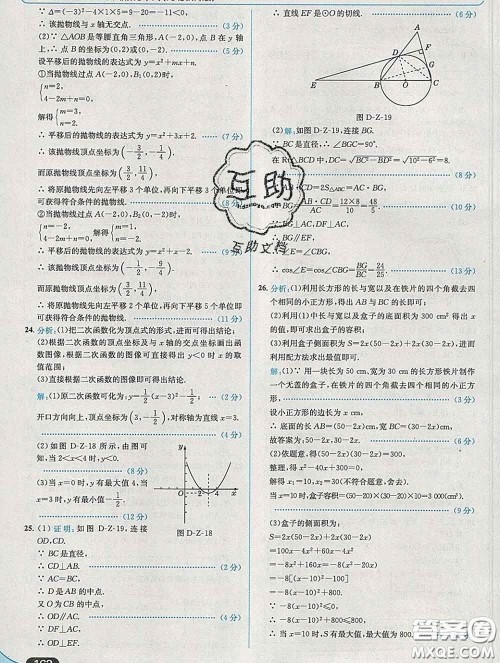 ∵ Δ=(-3)²-4×1×5=9-20=-11<0,
∴ 该抛物线与x轴无交点. (3分)
(2)∵ △AOB是等腰直角三角形, A(-2,0), 点B在y轴上, ∴ 点B的坐标为(0,2)或(0,-2). (5分)
设平移后的抛物线的表达式为y=x²+mx+n.
①当抛物线过点A(-2,0), B(0,2)时,
{n=2, 4-2m+n=0, 解得 {m=3, n=2.
∴ 平移后的抛物线的表达式为y=x²+3x+2. (7分)
∴ 该抛物线顶点坐标为(-3/2, -1/4)
而原抛物线顶点坐标为(3/2, 11/4),
∴ 将原抛物线先向左平移3个单位,再向下平移3个单位即可获得符合条件的抛物线. (8分)
②当抛物线过点A(-2,0), B(0,-2)时,
解得
∴ 平移后的抛物线的表达式为y=x²+x-2. (9分)
∴ 该抛物线顶点坐标为
而原抛物线顶点坐标为
∴ 将原抛物线先向左平移2个单位,再向下平移5个单位即可获得符合条件的抛物线. (10分)
24. 分析:(1)把二次函数化为顶点式的形式,进而可得出结论;
(2)根据二次函数的顶点坐标及与x轴的交点坐标画出函数图像,根据二次函数的图像可直接得出y<0时x的取值范围;
(3)直接根据二次函数的图像即可得出结论.
解:(1)原二次函数可化为:y=1/2(x-3)²-1/2, (2分)
开口方向向上,顶点坐标为(3,-1/2),对称轴为直线x=3. (4分)
(2)如图D-Z-18所示,由图可得,当2<x<4时,y<0. (8分)
(3)当x=0时,y有最大值4,当x=3时,y有最小值-1/2. (12分)
y
O
x
图D-Z-18
25. (1)证明:如图D-Z-19,连接OD,CD.
∵ BC是直径,
∴ CD⊥AB. (2分)
∵ AC=BC,
∴ D是AB的中点.
又O为CB的中点,
∴ OD∥AC. (4分)
∵ DF⊥AC,
∴ OD⊥EF.
∴ 直线EF是⊙O的切线. (6分)
A
F
D
G
E
B
O
C
图D-Z-19
(2)解:如图D-Z-19,连接BG.
∵ BC是直径, ∴ ∠BGC=90°.
在Rt△BCD中, DC=√(BC²-BD²)=√(10²-6²)=8. (8分)
∵ AB·CD=2S△ABC=AC·BG,
∴ BG=AB·CD/AC=12×8/10=48/5. (10分)
∴ BG∥EF,
∴ ∠E=∠CBG,
∴ cos∠E=cos∠CBG=BG/BC=24/25. (14分)
26. 分析:(1)利用矩形的长与宽以及在铁片的四个角截去四个相同的小正方形,得出AB与BC的长即可;
(2)利用(1)中长与宽以及盒子的底面积为300 cm²得出x的值即可;
(3)利用盒子侧面积为:S=2x(50-2x)+2x(30-2x),进而利用配方法求出最值即可.
解:(1)∵ 用一块长为50 cm,宽为30 cm的长方形铁片制作一个无盖的盒子,在铁片的四个角截去四个相同的小正方形,
设小正方形的边长为x cm,
∴ 底面的长AB=(50-2x) cm,宽BC=(30-2x) cm.
故答案为50-2x,30-2x. (6分)
(2)依题意,得(50-2x)(30-2x)=300.
整理,得x²-40x+300=0.
解得x₁=10,x₂=30(不符合题意,舍去).
当x₁=10时,盒子容积=(50-20)×(30-20)×10=3000(cm³). (9分)
(3)盒子的侧面积为:
S=2x(50-2x)+2x(30-2x)
=100x-4x²+60x-4x²
=-8x²+160x
=-8(x²-20x)
=-8[(x-10)²-100]
=-8(x-10)²+800.
∵ -8(x-10)²≤0,
∴ -8(x-10)²+800≤800.
∴ 当x=10时,S有最大值,最大值为800.
162
互助
互助文档
答案圈
MXQE.COM